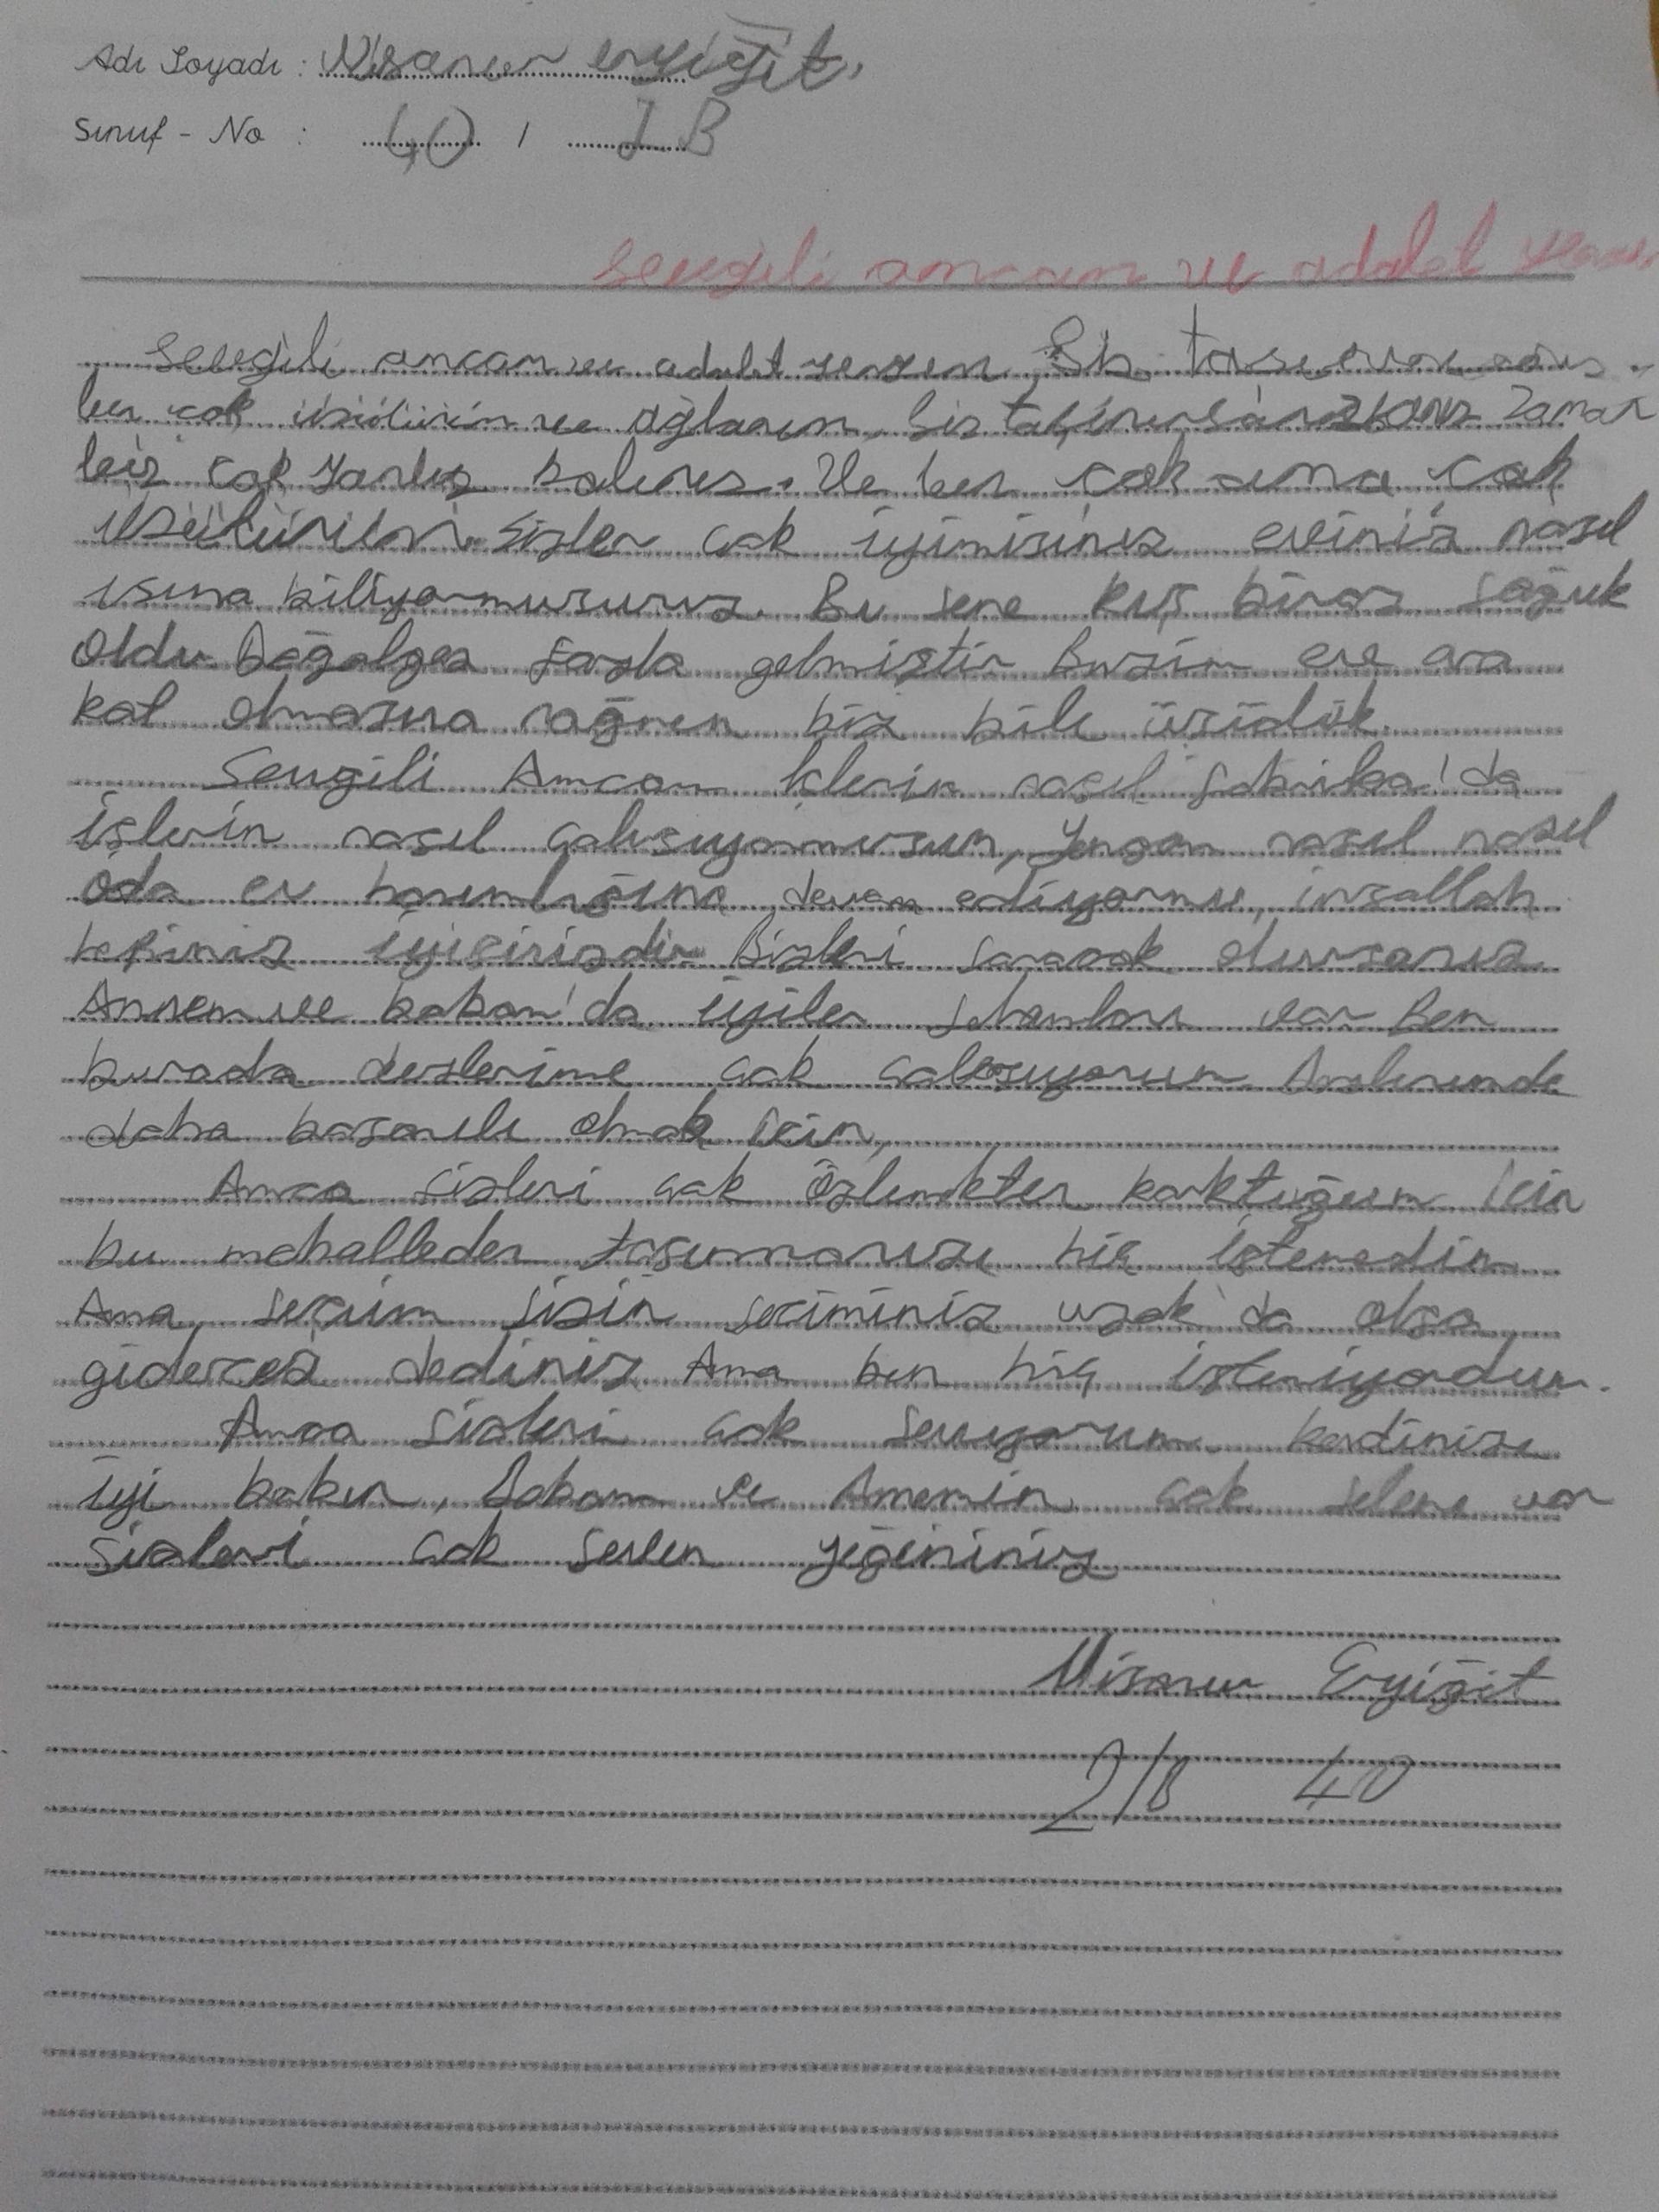 Adı Soyadı : Nisanur eryiğit
Sınıf - No : 40 / 2 B
sevgili amcam ve adalet
sevgili amcam ve adalet yengem Siz
ben çok üzülürüm ve ağlarım Siz zaman
biz çok yanlız kalırız. Ve ben çok ama çok
üzülürüm sizler çok iyimisiniz eviniz nasıl
ısına biliyormusunuz. Bu sene kış biraz soğuk
oldu Doğalgaz fazla gelmiştir Bizim ev ara
kat olmasına rağmen biz bile üşüdük.
Sevgili Amcam İşlerin nasıl fabrika'da
işlerin nasıl çalışıyormusun, Yengem nasıl nasıl
oda ev hanımlığına devam ediyormu, inşallah
hepiniz iyisinizdir Bizleri soracak olursanız
Annem ve babam'da iyiler selamları var Ben
burada derslerime çok çalışıyorum derslerimde
daha başarılı olmak için,
Amca sizleri çok özlemekten korktuğum için
bu mahalleden taşınmanızı hiç istemedim
Ama seçim sizin seçiminiz uzak'da olsa
gidercez dediniz Ama ben hiç istemiyordum.
Amca sizleri çok seviyorum kendinize
iyi bakın, babam ve Annemin çok selamı var
sizleri çok seven yeğeniniz
Nisanur Eryiğit
2/B 40